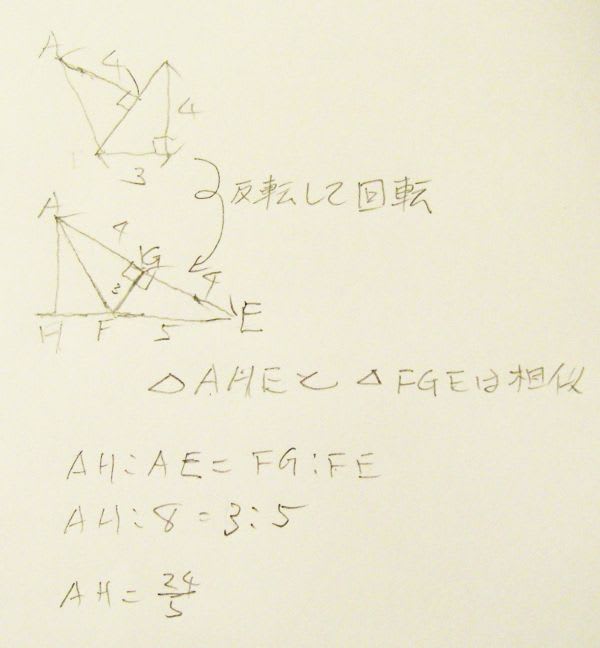 A 4
4
3
反転して回転
A 4
G
3 4
H F 5 E
△AHEと△FGEは相似
AH:AE=FG:FE
AH:8=3:5
AH=24/5